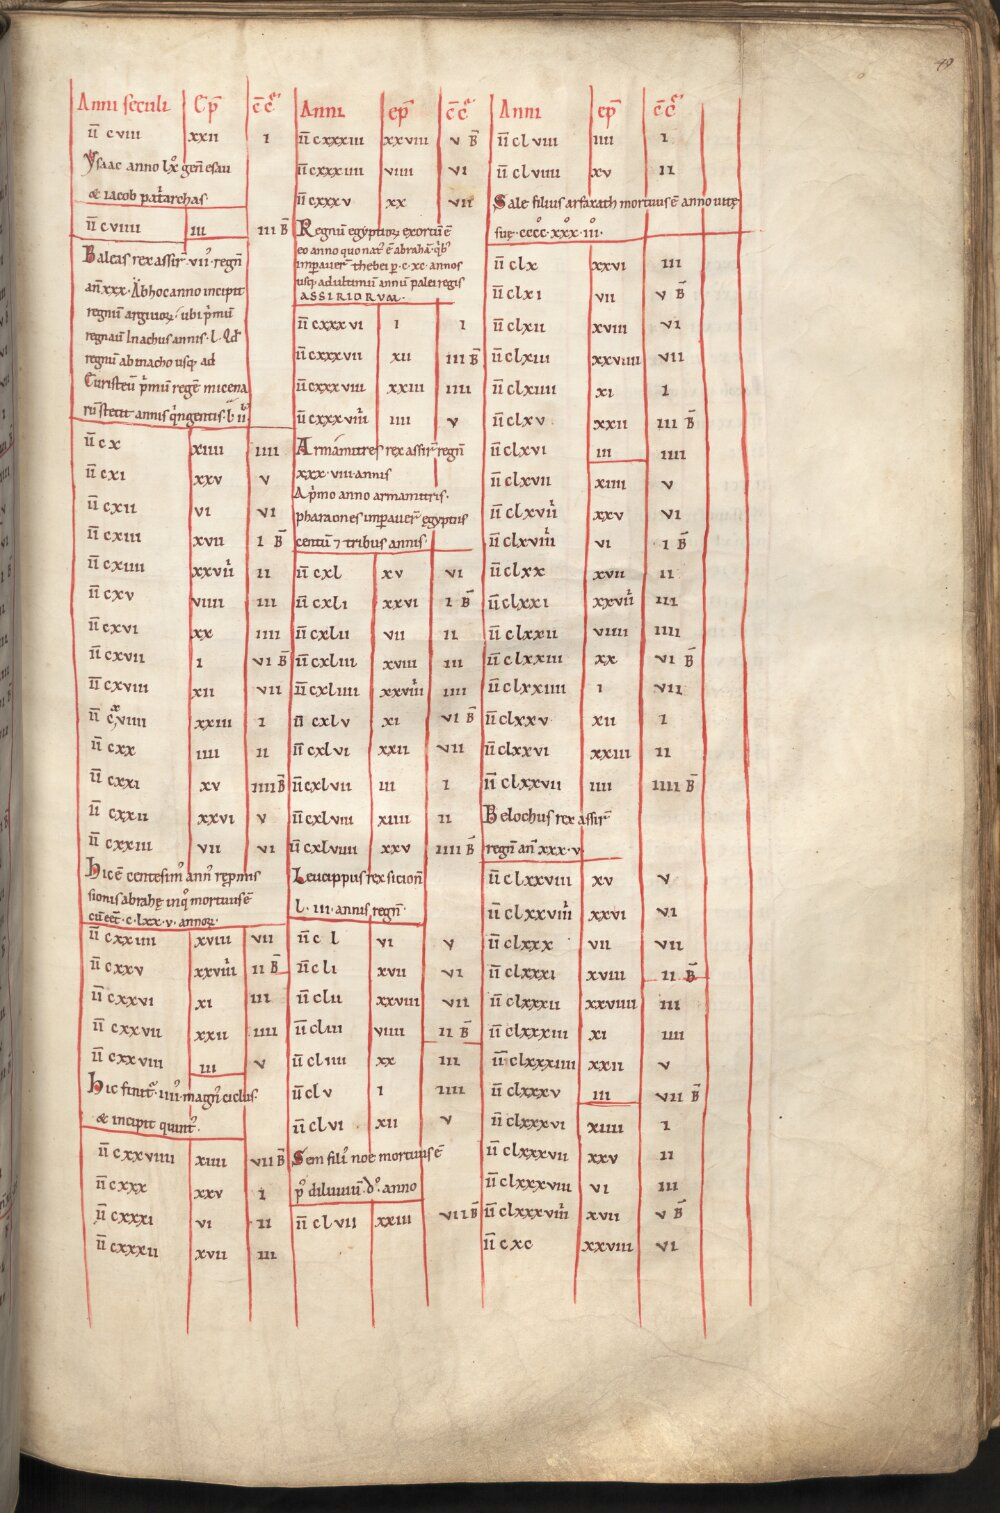 49
Anni seculi Ep̄ c̄c̄
īī cviii xxii i
Ysaac anno lx̊ gen̄ esau
& iacob patͥarchas
īī cviiii iii iii B̄
Baleas rex assir̄ vii᾿ regn̄
an̄ xxx. Ab hoc anno incipit
regnū argiuoꝝ ubi pͥmū
regnaũ Inachus annis. l. Qd̄
regnū ab inacho usq; ad
Euristeū pͥmū regē micena
rū stetit annis qͥngentis
īī cx xiiii iiii
īī cxi xxv v
īī cxii vi vi
īī cxiii xvii i B̄
īī cxiiii xxvii̍i ii
īī cxv viiii iii
īī cxvi xx iiii
īī cxvii i vi B̄
īī cxviii xii vii
īī cxviiii xxiii i
īī cxx iiii ii
īī cxxi xv iiii B̄
īī cxxii xxvi v
īī cxxiii vii vi
Hic ē centesim᾿ ann᾿ rep̱mis
sionis abrahę inq̊ mortuus ē
c. lxx. v. annoꝝ.
īī cxxiiii xviii vii
īī cxxv xxviii̍i ii B̄
īī cxxvi xi iii
īī cxxvii xxii iiii
īī cxxviii iii v
Hic finit᷑ iiii᾿ magn᾿ ciclus
& incipit quint᾿
īī cxxviiii xiiii vii B̄
īī cxxx xxv i
īī cxxxi vi ii
īī cxxxii xvii iii
Anni ep̄ c̄c̄
īī cxxxiii xxviii v B̄
īī cxxxiiii viiii vi
īī cxxxv xx vii
Regnū egyptioꝝ exortū ē
eo anno quo nat᾿ ē abrahā. qͥb᾿
imp̱auer̄ thebei p̱. c. xc. annos
usq; ad ultimū annū palei regis
ASSIRIORVM.
īī cxxxvi i i
īī cxxxvii xii iii B̄
īī cxxxviii xxiii iiii
īī cxxxviii̍i iiii v
Armamitres rex assir̄ regn̄
xxx. viii annis
A pͥmo anno armamitris.
pharaones imp̱auer̄ ęgyptiis
centū ⁊ tribus annis.
īī cxl xv vi
īī cxli xxvi i B̄
īī cxlii vii ii
īī cxliii xviii iii
īī cxliiii xxviii̍i iiii
īī cxlv xi vi B̄
īī cxlvi xxii vii
īī cxlvii iii i
īī cxlviii xiiii ii
īī cxlviiii xxv iiii B̄
Leucippus rex sicion̄
l. iii. annis regn̄
īī cl vi v
īī cli xvii vi
īī clii xxviii vii
īī cliii viiii ii B̄
īī cliiii xx iii
īī clv i iiii
īī clvi xii v
Sem fili᾿ noe mortuus ē
p᾿ diluuiū. d᾿. anno
īī clvii xxiii vii B̄
Anni ep̄ c̄c̄
īī clviii iiii i
īī clviiii xv ii
Sale filius arfaxath mortuus ē anno uitę
suę. cccc. xxx. iii.
īī clx xxvi iii
īī clxi vii v B̄
īī clxii xviii vi
īī clxiii xxviiii vii
īī clxiiii xi i
īī clxv xxii iii B̄
īī clxvi iii iiii
īī clxvii xiiii v
īī clxvii̍i xxv vi
īī clxviii̍i vi i B̄
īī clxx xvii ii
īī clxxi xxvii̍i iii
īī clxxii viiii iiii
īī clxxiii xx vi B̄
īī clxxiiii i vii
īī clxxv xii i
īī clxxvi xxiii ii
īī clxxvii iiii iiii B̄
Belochus rex assir̄
regn̄ an̄ xxx. v.
īī clxxviii xv v
īī clxxviii̍i xxvi vi
īī clxxx vii vii
īī clxxxi xviii ii B̄
īī clxxxii xxviiii iii
īī clxxxiii xi iiii
īī clxxxiiii xxii v
īī clxxxv iii vii B̄
īī clxxxvi xiiii i
īī clxxxvii xxv ii
īī clxxxviii vi iii
īī clxxxviii̍i xvii v B̄
īī cxc xxviii vi